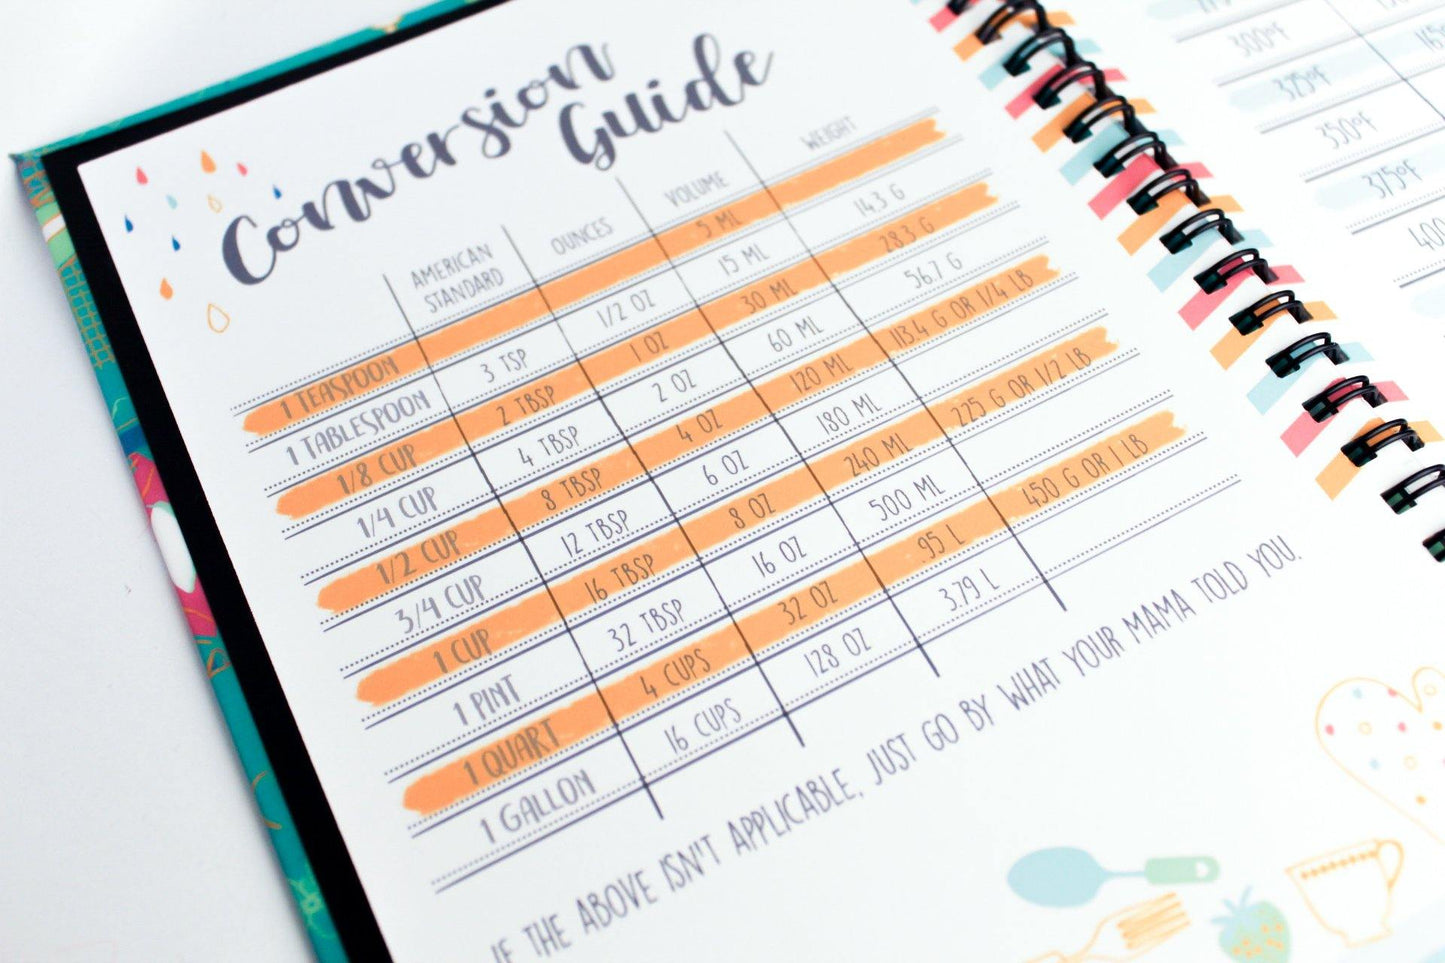 Conversion
Guide
AMERICAN
STANDARD
OUNCES
VOLUME
WEIGHT
1 TEASPOON 5 ML
1 TABLESPOON 3 TSP 1/2 OZ 15 ML 14.3 G
1/8 CUP 2 TBSP 1 OZ 30 ML 28.3 G
1/4 CUP 4 TBSP 2 OZ 60 ML 56.7 G
1/2 CUP 8 TBSP 4 OZ 120 ML 113.4 G OR 1/4 LB
3/4 CUP 12 TBSP 6 OZ 180 ML
1 CUP 16 TBSP 8 OZ 240 ML 225 G OR 1/2 LB
1 PINT 32 TBSP 16 OZ 500 ML
1 QUART 4 CUPS 32 OZ .95 L 450 G OR 1 LB
1 GALLON 16 CUPS 128 OZ 3.79 L
IF THE ABOVE ISN'T APPLICABLE, JUST GO BY WHAT YOUR MAMA TOLD YOU.
300°F
325°F
350°F
375°F
400